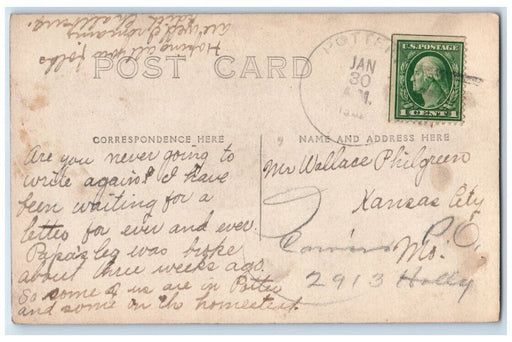 Hoping all you folks
are well & remains
Edith
POST CARD
POTTER
JAN
30
A.M.
U.S. POSTAGE
1 CENT 1
CORRESPONDENCE HERE
NAME AND ADDRESS HERE
Are you never going to
write again? I have
been waiting for a
letter for ever and ever.
Papa's leg was broke
about three weeks ago.
So some of us are in Potter
and some on the homestead.
Mr Wallace Philgreen
Kansas City
Mo.
2913 Holly